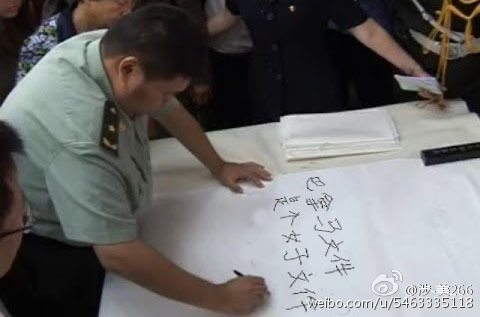 巴拿马文件
是个女子文件
@涉美266
weibo.com/u/5463335118